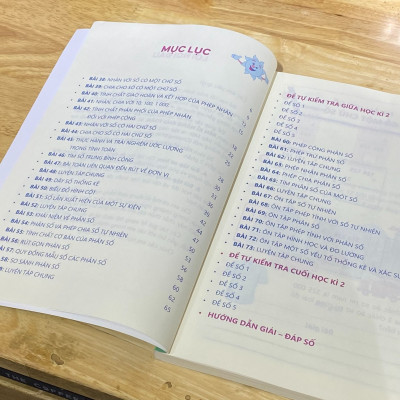 MỤC LỤC
BÀI 38: NHÂN VỚI SỐ CÓ MỘT CHỮ SỐ
BÀI 39: CHIA CHO SỐ CÓ MỘT CHỮ SỐ
BÀI 40: TÍNH CHẤT GIAO HOÁN VÀ KẾT HỢP CỦA PHÉP NHÂN
BÀI 41: NHÂN, CHIA VỚI 10, 100, 1 000
TÍNH CHẤT PHÂN PHỐI CỦA PHÉP NHÂN
ĐỐI VỚI PHÉP CỘNG
NHÂN VỚI SỐ CÓ HAI CHỮ SỐ
BÀI 44: CHIA CHO SỐ CÓ HAI CHỮ SỐ
BÀI 45: THỰC HÀNH VÀ TRẢI NGHIỆM ƯỚC LƯỢNG
TRONG TÍNH TOÁN
BÀI 46: TÌM SỐ TRUNG BÌNH CỘNG
BÀI 47: BÀI TOÁN LIÊN QUAN ĐẾN RÚT VỀ ĐƠN VỊ
LUYỆN TẬP CHUNG
DÃY SỐ LIỆU THỐNG KÊ
BIỂU ĐỒ HÌNH CỘT
SỐ LẦN XUẤT HIỆN CỦA MỘT SỰ KIỆN
LUYỆN TẬP CHUNG
KHÁI NIỆM VỀ PHÂN SỐ
PHÂN SỐ VÀ PHÉP CHIA SỐ TỰ NHIÊN
TÍNH CHẤT CƠ BẢN CỦA PHÂN SỐ
RÚT GỌN PHÂN SỐ
QUY ĐỒNG MẪU SỐ CÁC PHÂN SỐ
SO SÁNH PHÂN SỐ
LUYỆN TẬP CHUNG
ĐỀ TỰ KIỂM TRA GIỮA HỌC KÌ 2
ĐỀ SỐ 1
ĐỀ SỐ 2
ĐỀ SỐ 3
ĐỀ SỐ 4
ĐỀ SỐ 5
BÀI 60: PHÉP CỘNG PHÂN SỐ
BÀI 61: PHÉP TRỪ PHÂN SỐ
BÀI 62: LUYỆN TẬP CHUNG
BÀI 63: PHÉP NHÂN PHÂN SỐ
PHÉP CHIA PHÂN SỐ
TÌM PHÂN SỐ CỦA MỘT SỐ
LUYỆN TẬP CHUNG
ÔN TẬP SỐ TỰ NHIÊN
BÀI 69: ÔN TẬP PHÉP TÍNH VỚI SỐ TỰ NHIÊN
BÀI 70: ÔN TẬP PHÂN SỐ
BÀI 71: ÔN TẬP PHÉP TÍNH VỚI PHÂN SỐ
ÔN TẬP HÌNH HỌC VÀ ĐO LƯỜNG
ÔN TẬP MỘT SỐ YẾU TỐ THỐNG KÊ VÀ XÁC SU
BÀI 73: LUYỆN TẬP CHUNG
ĐỀ TỰ KIỂM TRA CUỐI HỌC KÌ 2
ĐỀ SỐ 1
ĐỀ SỐ 2
ĐỀ SỐ 3
ĐỀ SỐ 4
ĐỀ SỐ 5
HƯỚNG DẪN GIẢI – ĐÁP SỐ